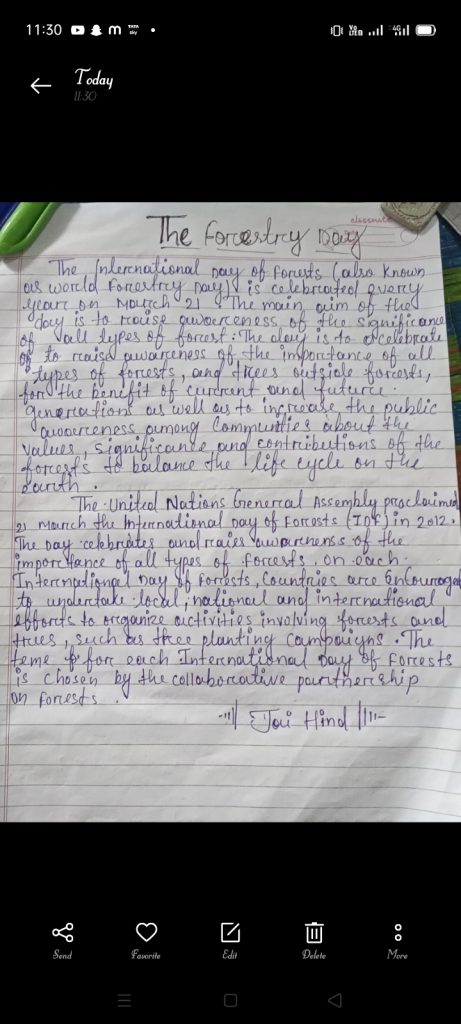 11:30
TATA
sky
Vo
LTE
4G
Today
11:30
classmate
The Forestry Day
The International Day of Forests (also known
as world Forestry Day) is celebrated every
year on March 21. The main aim of the
day is to raise awareness of the significance
of all types of forest. The day is to celebrate
to raise awareness of the importance of all
types of forests, and trees outside forests,
for the benefit of current and future
generations as well as to increase the public
awareness among Communities about the
values, significance and contributions of the
forests to balance the life cycle on the
Earth.
The United Nations General Assembly proclaimed
21 March the International Day of Forests (IDF) in 2012.
The Day celebrates and raies awareness of the
importance of all types of forests. on each
International Day of Forests, Countries are Encouraged
to undertake local, national and international
efforts to organize activities involving forests and
trees, such as tree planting campaigns. The
teme for each International Day of Forests
is chosen by the collaborative partnership
on forests.
Jai Hind
Send Favorite Edit Delete More